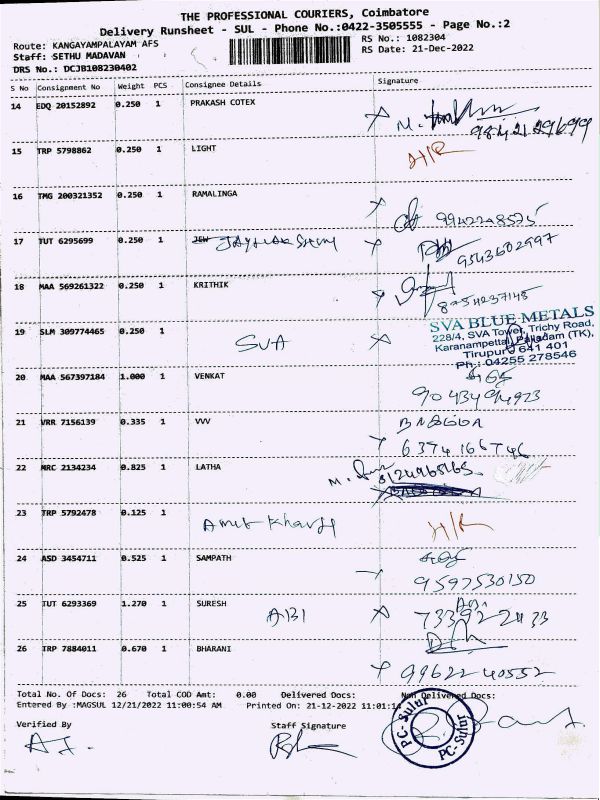 THE PROFESSIONAL COURIERS, Coimbatore
Delivery Runsheet - SUL - Phone No.:0422-3505555 - Page No.:2
Route: KANGAYAMPALAYAM AFS
RS No.: 1082304
Staff: SETHU MADAVAN
RS Date: 21-Dec-2022
DRS No.: DCJB108230402
S No Consignment No Weight PCS Consignee Details Signature
14 EDQ 20152892 0.250 1 PRAKASH COTEX
15 TRP 5798862 0.250 1 LIGHT H/R
16 TMG 200321352 0.250 1 RAMALINGA
9942248525
17 TUT 6295699 0.250 1
9543602997
18 MAA 569261322 0.250 1 KRITHIK
8754237148
19 SLM 309774465 0.250 1 SVA
SVA BLUE METALS
228/4, SVA Tower, Trichy Road,
Karanampettai, Palladam (TK),
Tirupur 641 401
Ph.: 04255 278546
20 MAA 567397184 1.000 1 VENKAT
21 VRR 7156139 0.335 1 VVV
6374166746
22 MRC 2134234 0.825 1 LATHA
23 TRP 5792478 0.125 1 H/R
24 ASD 3454711 0.525 1 SAMPATH
9597530150
25 TUT 6293369 1.270 1 SURESH
ABI
26 TRP 7884011 0.670 1 BHARANI
9962240552
Total No. Of Docs: 26 Total COD Amt: 0.00 Delivered Docs: Non Delivered Docs:
Entered By :MAGSUL 12/21/2022 11:00:54 AM Printed On: 21-12-2022 11:01:14
Verified By Staff Signature
PC-Sulur
PC-Sulur